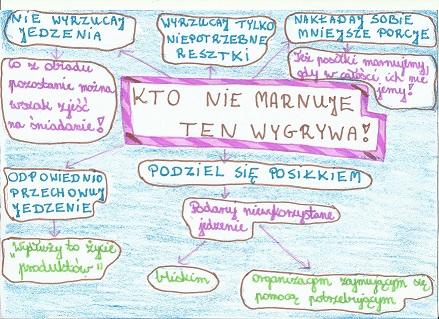 NIE WYRZUCAJ
JEDZENIA
WYRZUCAJ TYLKO
NIEPOTRZEBNE
RESZTKI
NAKŁADAJ SOBIE
MNIEJSZE PORCJE
To z obiadu
pozostanie można
wszak zjeść
na śniadanie!
Też posiłki marnujemy,
gdy w całości ich nie
jemy!
KTO NIE MARNUJE
TEN WYGRYWA!
ODPOWIEDNIO
PRZECHOWUJ
JEDZENIE
PODZIEL SIĘ POSIŁKIEM
Podaruj niewykorzystane
jedzenie
Wydłuży to życie
"produktów"
bliskim
organizacjom zajmującym się
pomocą potrzebującym